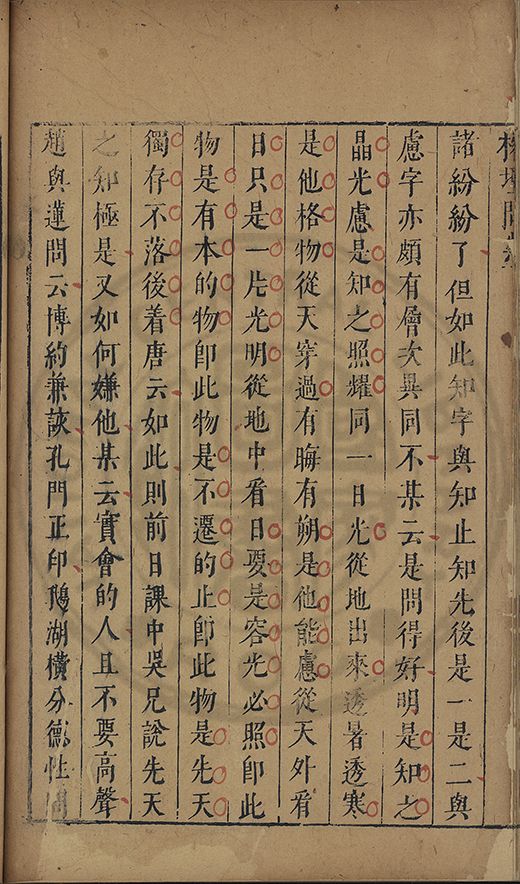 榕壇問業
諸紛紛了但如此知字與知止知先後是一是二與
慮字亦頗有層次異同不某云是問得好明是知之
晶光慮是知之照耀同一日光從地出來透暑透寒
是他格物從天穿過有晦有朔是他能慮從天外看
日只是一片光明從地中看日要是容光必照即此
物是有本的物即此物是不遷的止即此物是先天
獨存不落後着唐云如此則前日課中吳兄說先天
之知極是又如何嫌他某云實會的人且不要高聲
趙與蓮問云博約兼該孔門正印鵝湖橫分德性